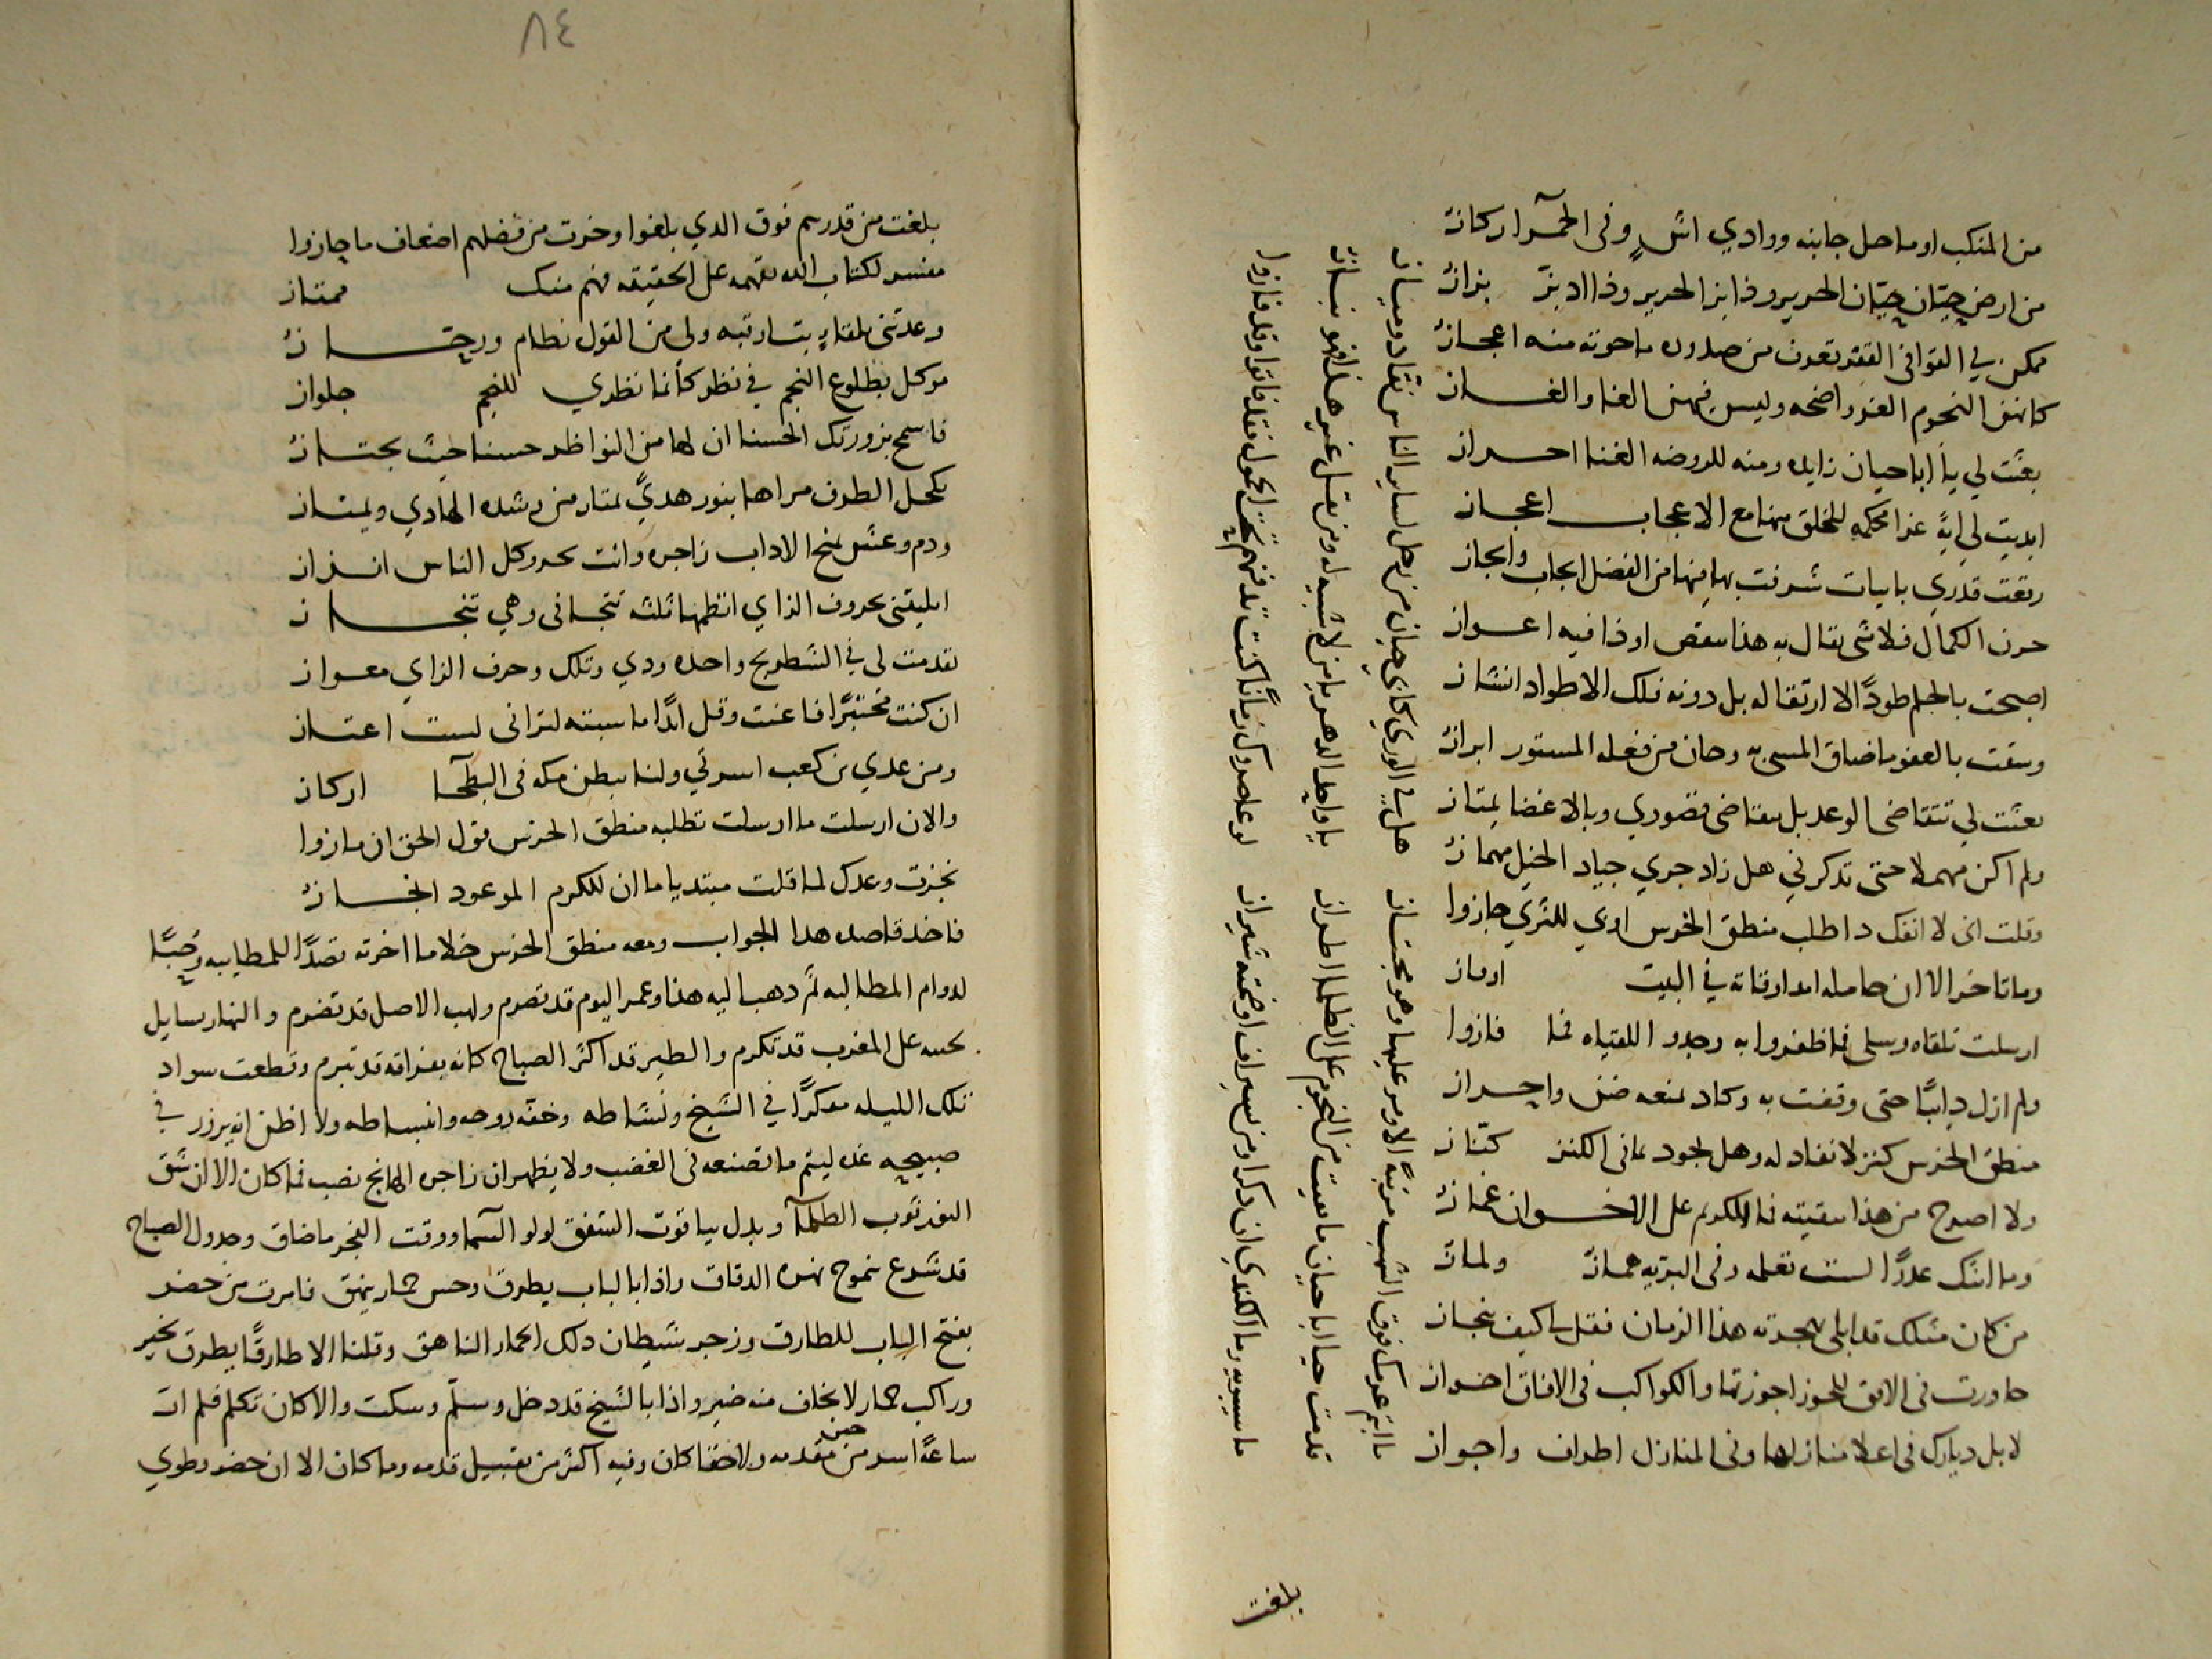 من المنكب او ما حل جانبه ووادي اش وفي الحمرا اركان
من ارض جيان جيان الحرير وذا بز الحرير وذا الادبز بزاز
كانهن النجوم الغر واضحه وليس فيهن الغا والغاز
بعثت لي يا ابا حيان زايده ومنه للروضه الغنا احراز
ابديت لي اية غرا محكمه للخلق منها مع الاعجاب اعجاز
رفعت قدري بابيات شرفت بها فيها من الفضل ايجاب وايجاز
حزت الكمال فلا شي يقال به هذا بنقص او ذا فيه اعواز
اصبحت بالحلم طودا لا ارتقا له بل دونه تلك الاطواد انشاز
وسعت بالعفو ما ضاق المسي به وحاز من فعله المستور ابراز
بعثت لي تتقاضى الوعد بل بتقاضي قصوري وبالاغضا يمتاز
ولم اكن مهملا حتى تذكرني هل زاد جري جياد الخيل مهماز
وقلت اني لا انفك داطلب منطق الخرس اوي للثري جازوا
وما تاخر الا ان حامله امدا وقاته في البيت اوماز
ارسلت تلقاه رسلي فما ظفروا به وجدوا اللقياه فما فازوا
ولم ازل دايبا حتى وقفت به وكاد يمنعه ضنى واحراز
منطق الخرس كنز لا نفاد له وهل يجود بما في الكنز كناز
ولا اصرح من هذا بقيته فما الكريم على الاخوان غماز
وما اشك عددا لست تعلمه وفي البريه هماز ولماز
من كان مثلك قد ابلى بهجرته هذا الزمان فقل لي كيف ينجاز
جاورت في الافق للجوز اجوزتها والكواكب في الافاق اخواز
لا بل ديارك في اعلا منازلها وفي المنازل اطراف واجواز
ما انتم عرسك فوق الشهب مرتبة الا ومر عليها وهو مجتاز هل في الوري كابي حيان من رجل لساير الناس نقاد وميان
قد مت حيا ابا حيان ما بقيت من النجوم على الظلما اطراز يا واحد الدهر يا من لا شبيه له ومن يقل غير هذا فهو نباز
ما سيبويه وما الكندي ان ذكرا ومن سيراف اوضحته شيراز لو عاصروك زمانا كنت تدفنهم تحت الخمول فقد فاتوا وقد فازوا
بلغت
٨٤
بلغت من قدرهم فوق الدي بلغوا وحزت من فضلهم اضعاف ما جازوا
مفسر لكتاب الله تفهمه على الحقيقه فهم منك ممتاز
وعدتني بلقا ... رتبه ولي من القول نظام ورجاز
موكل بطلوع النجم في نظر كانما نظري للنجم جلواز
فاسمح بزورتك الحسنا ان لها من النواظر حسنا حيث تجتاز
يكحل الطرف مراها بنور هدى يمتار من رشده الهادي ويمتاز
ودم وعش لمنح الاداب زاجره وانت بحر وكل الناس انزاز
ابليتني بحروف الزاي انظمها ثلثه تتجافى وهي تنجاز
تقدمت لي في الشطرنج واحده ودي وتلك وحرف الزاي معواز
ان كنت مختبرا فاعنت وقل ابدا ما سبته لتراني لست اعتاز
ومن عدي بن كعب اسرتي ولنا ببطن مكه في البطحا اركاز
والان ارسلت ما ارسلت تطلبه منطق الخرس قول الحق ان مازوا
نجزت وعدك لما قلت مبتديا ما ان للكرم الموعود انجاز
فاخذ قاصده هدا الجواب ومعه منطق الخرس خلا ما اخرته قصدا للمطايبه وحبا
لدوام المطالبه ثم دهب اليه هذا وعمر اليوم قد تصرم ولهب الاصل قد تضرم والنهار سايل
... على المغرب قد تكرم والطير قد اكثر الصياح كانه بفراقه قد تبرم وقطعت سواد
تلك الليله مفكرا في الشيخ ونشاطه وخفه روحه وانبساطه ولا اظن انه يزور في
صبيحه غد ليتم ما تصنعه في الغضب ولا يظهر ان زاجره الهايج نضب فما كان الا ان شق
النور ثوب الظلما وبدل بياقوت الشفق لولو السما ووقت الفجر ما ضاق وجدول الصباح
قد شرع يتموج نهره الدفاق واذا بالباب يطرق وحس حمار ينهق فامرت من حضر
بفتح الباب للطارق وزجر شيطان دلك الحمار الناهق وقلنا الا طارقا يطرق بخير
وراكب حمار لا يخاف منه ضير واذا بالشيخ قد دخل وسلم وسكت والا كان تكلم فلم ار
ساعة اسر من حين مقدمه ولا حقا كان وفيه اكثر من تقبيل قدمه وما كان الا ان حضر وطوي